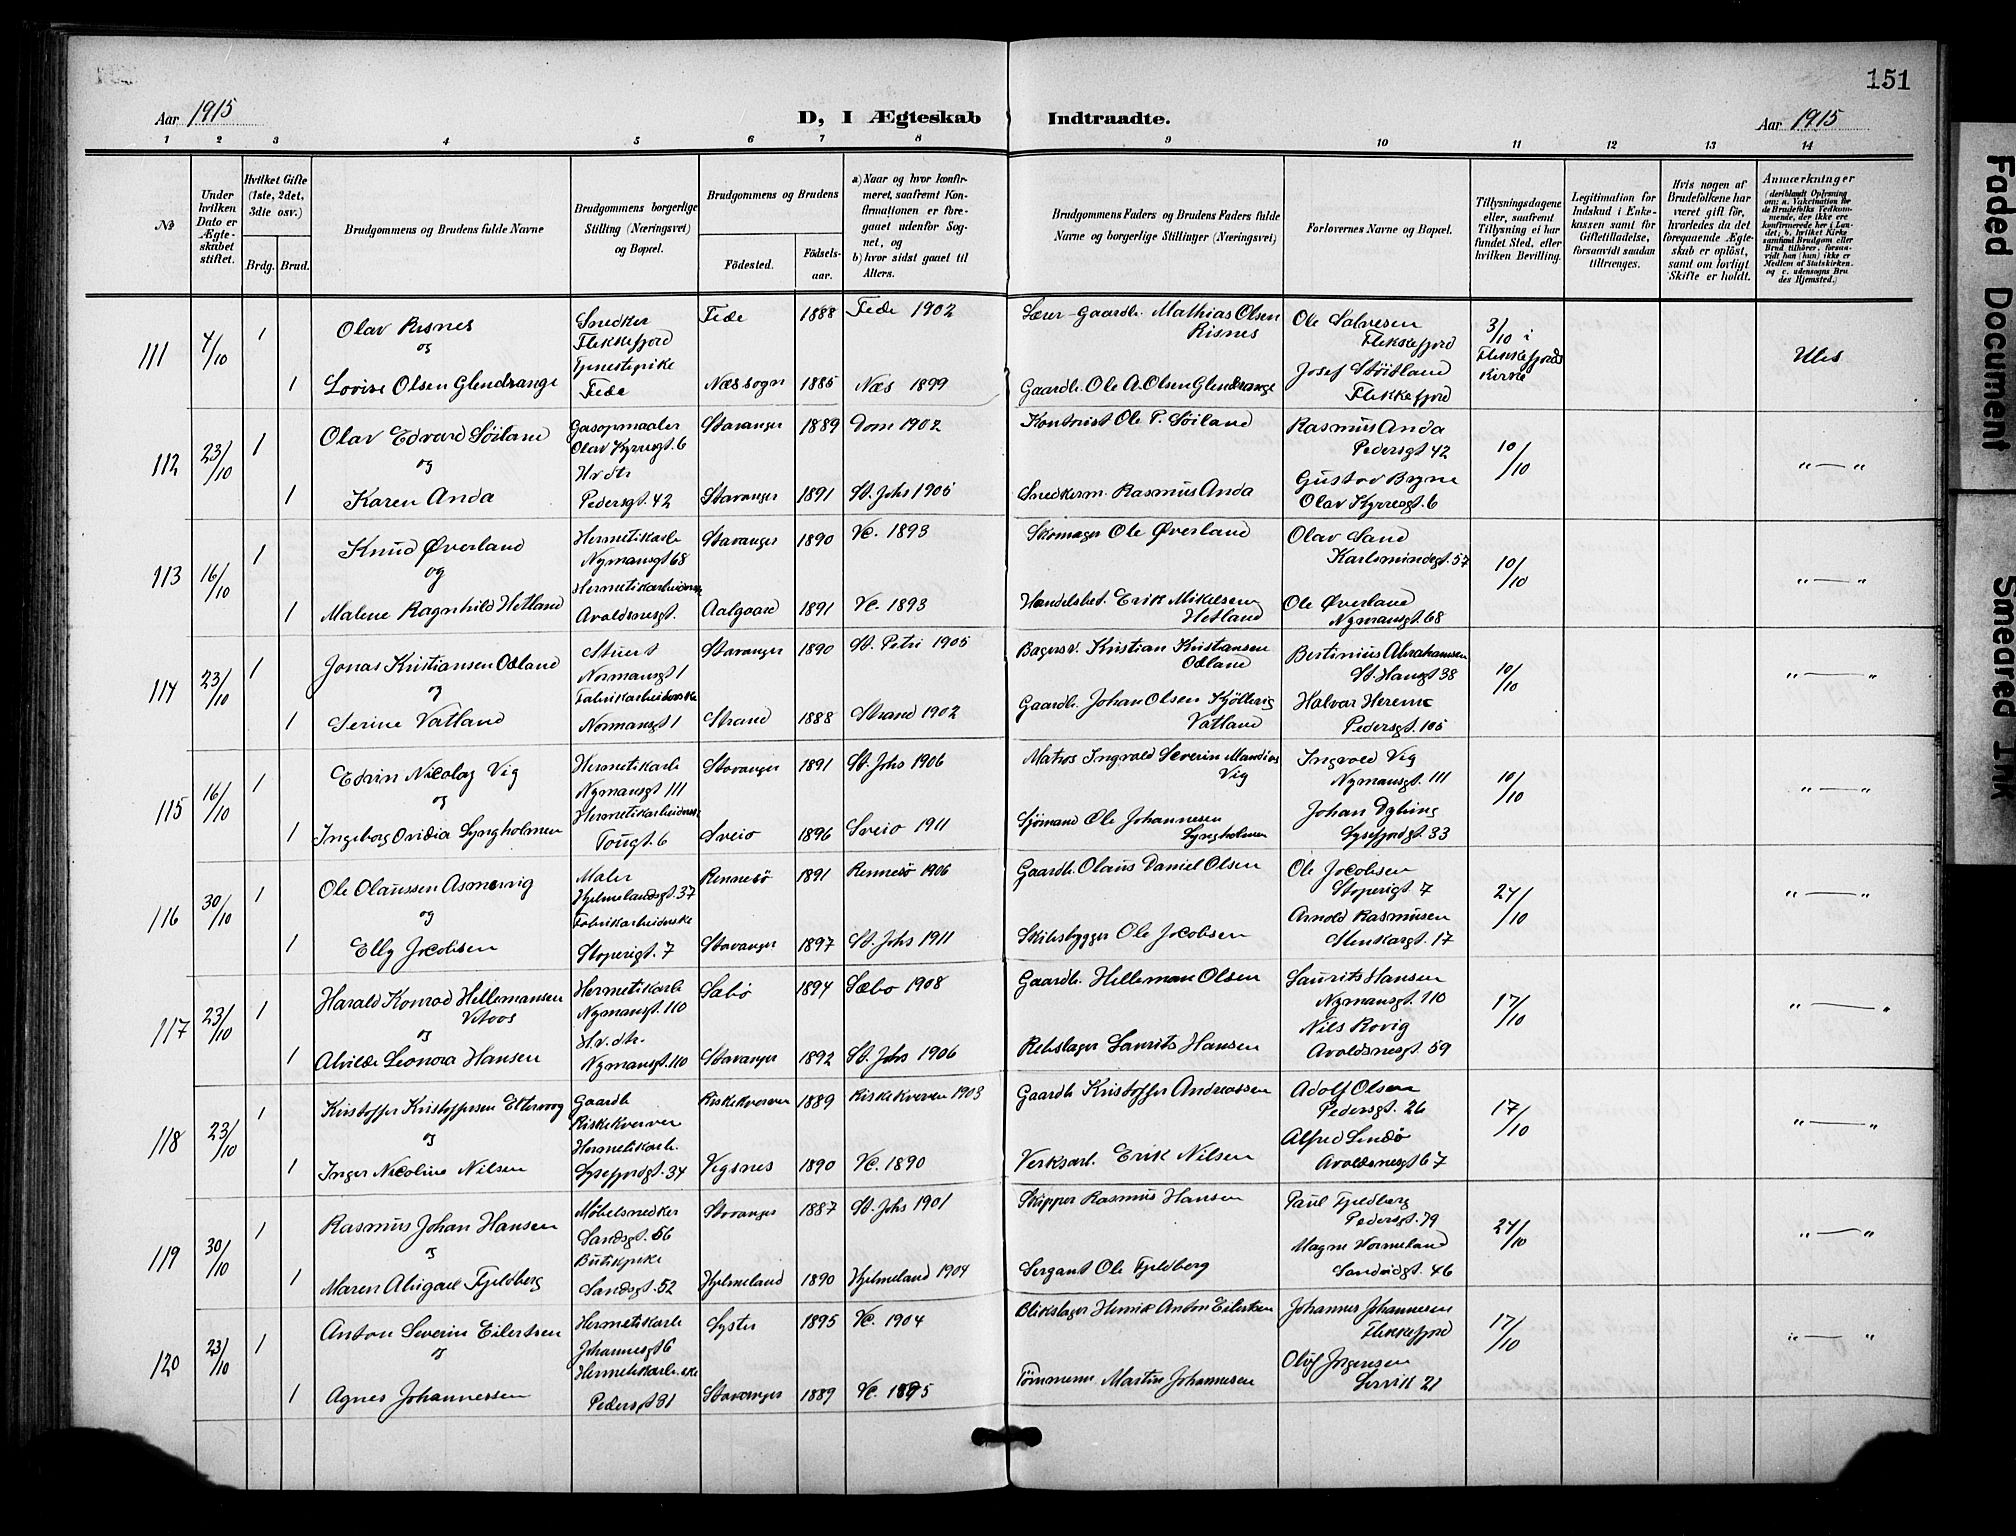 151
Aar 1915
D, I Ægteskab Indtraadte.
Aar 1915
1 2 3 4 5 6 7 8 9 10 11 12 13 14
№
Under hvilken Dato er Ægteskabet stiftet.
Hvilket Gifte (1ste, 2det, 3die osv.)
Brdg. Brud.
Brudgommens og Brudens fulde Navne
Brudgommens borgerlige Stilling (Næringsvei) og Bopæl.
Brudgommens og Brudens
Fødested.
Fødselsaar.
a) Naar og hvor konfirmeret, saafremt Konfirmationen er foregaaet udenfor Sognet, og
b) hvor sidst gaaet til Alters.
Brudgommens Faders og Brudens Faders fulde Navne og borgerlige Stillinger (Næringsvei)
Forlovernes Navne og Bopæl.
Tillysningsdagene eller, saafremt Tillysning ei har fundet Sted, efter hvilken Bevilling.
Legitimation for Indskud i Enkekassen samt for Giftetilladelse, forsaavidt saadan tiltrænges.
Hvis nogen af Brudefolkene har været gift før, hvorledes da det foregaaende Ægteskab er opløst, samt om lovligt Skifte er holdt.
Anmærkninger (deriblandt Oplysning om: a. Vakcination for de Brudefolks Vedkommende, der ikke ere konfirmerede her i Landet; b. hvilket Kirkesamfund Brudgom eller Brud tilhører, forsaavidt han (hun) ikke er Medlem af Statskirken; og c. udensogns Brudes Hjemsted.)
111 4/10 1 Olav Risnes Snedker Flekkefjord Fede 1888 Fede 1902 Gaardb. Mathias Olsen Risnes Ole Salvesen Flekkefjord 3/10 i Flekkefjords Kirke
og
1 Lovise Olsen Glendrange Tjenestepike Fede Næs sogn 1885 Næs 1899 Gaardb. Ole A. Olsen Glendrange Josef Støitland Flekkefjord
112 23/10 1 Olav Edvard Søiland Gasopmaaler Olav Kyrresgt 6 Stavanger 1889 Dom 1902 Kontorist Ole P. Søiland Rasmus Anda Pedersgt 42 10/10 " — "
og
1 Karen Anda H.v.dtr Pedersgt. 42 Stavanger 1891 St. Johs 1905 Snedkerm. Rasmus Anda Gustav Bryne Olav Kyrresgt. 6
113 16/10 1 Knud Øverland Hermetikarb Nymansgt 68 Stavanger 1890 Vc. 1893 Skomager Ole Øverland Olav Sand Karlsmindegt. 57 10/10 " — "
og
1 Malene Ragnhild Hetland Hermetikarbeiderske Avaldsnesgt. Aalgaard 1891 Vc. 1893 Handelsbet. Erik Mikelsen Hetland Ole Øverland Nymansgt. 68
114 23/10 1 Jonas Kristiansen Odland Stuert Normansgt 1 Stavanger 1890 St. Petri 1905 Bagersv. Kristian Kristiansen Odland Bertinius Abrahamsen St. Hansgt 38 10/10 " — "
og
1 Serine Vatland Fabrikarbeiderske Normansgt 1 Strand 1888 Strand 1902 Gaardb. Johan Olsen Vatland Halvar Pedersgt. 105
115 16/10 1 Edvin Nicolay Vig Hermetikarb Nymansgt 111 Stavanger 1891 St. Johs 1906 Matros Ingvald Severin Mandius Vig Ingvald Vig Nymansgt. 111 10/10 " — "
og
1 Ingeborg Ovidia Lyngholmen Hermetikarbeiderske Tougt. 6 Sveio 1896 Sveio 1911 Sjømand Ole Johannesen Lyngholmen Johan Dybing Lysefjordgt. 33
116 30/10 1 Ole Olaussen Asmervig Maler Hjelmelandsgt. 37 Rennesø 1891 Rennesø 1906 Gaardb. Olaus Daniel Olsen Ole Jacobsen Stoperigt. 7 24/10 " — "
og
1 Elly Jacobsen Fabrikarbeiderske Stoperigt. 7 Stavanger 1897 St. Johs 1911 Skibsbygger Ole Jacobsen Arnold Rasmusen Stenkargt. 17
117 23/10 1 Harald Konrad Hellemansen Hermetikarb Nymansgt. 110 Sæbø 1894 Sæbø 1908 Gaardb. Helleman Olsen Laurits Hansen Nymansgt. 110 17/10 " — "
og
1 Alvilde Leonora Hansen H.v.dtr. Nymansgt. 110 Stavanger 1892 St. Johs 1906 Rebslager Laurits Hansen Nils Rovig Avaldsnesgt. 59
118 23/10 1 Kristoffer Kristoffersen Gaardb Riskekverven Riskekverven 1889 Riskekverven 1903 Gaardb Kristoffer Andreassen Adolf Olsen Pedersgt. 26 17/10 " — "
og
1 Inger Nicoline Nilsen Hermetikarb. Lysefjordgt. 34 Vigsnes 1890 Vc. 1890 Verksarb. Erik Nilsen Alfred Lindø Avaldsnesgt 67
119 30/10 1 Rasmus Johan Hansen Møbelsnedker Sandsgt. 56 Stavanger 1887 St. Johs 1901 Skipper Rasmus Hansen Paul Fjeldberg Pedersgt. 79 24/10 " — "
og
1 Maren Abigael Fjeldberg Butikpike Sandsgt. 52 Hjelmeland 1890 Hjelmeland 1904 Sergant Ole Fjeldberg Magne Vormeland Sandeidgt. 46
120 23/10 1 Anton Severin Eilertsen Hermetikarb Johannesgt 6 Lyster 1895 Vc. 1904 Blikslager Henrik Anton Eilertsen Johannes Johannesen Flekkefjord 17/10 " — "
og
1 Agnes Johannessen Hermetikarb.ske Pedersgt 91 Stavanger 1889 Vc. 1895 Tømmerm Martin Johannesen Olaf Jørgensen Lervik 21
Faded Document
Smeared Ink